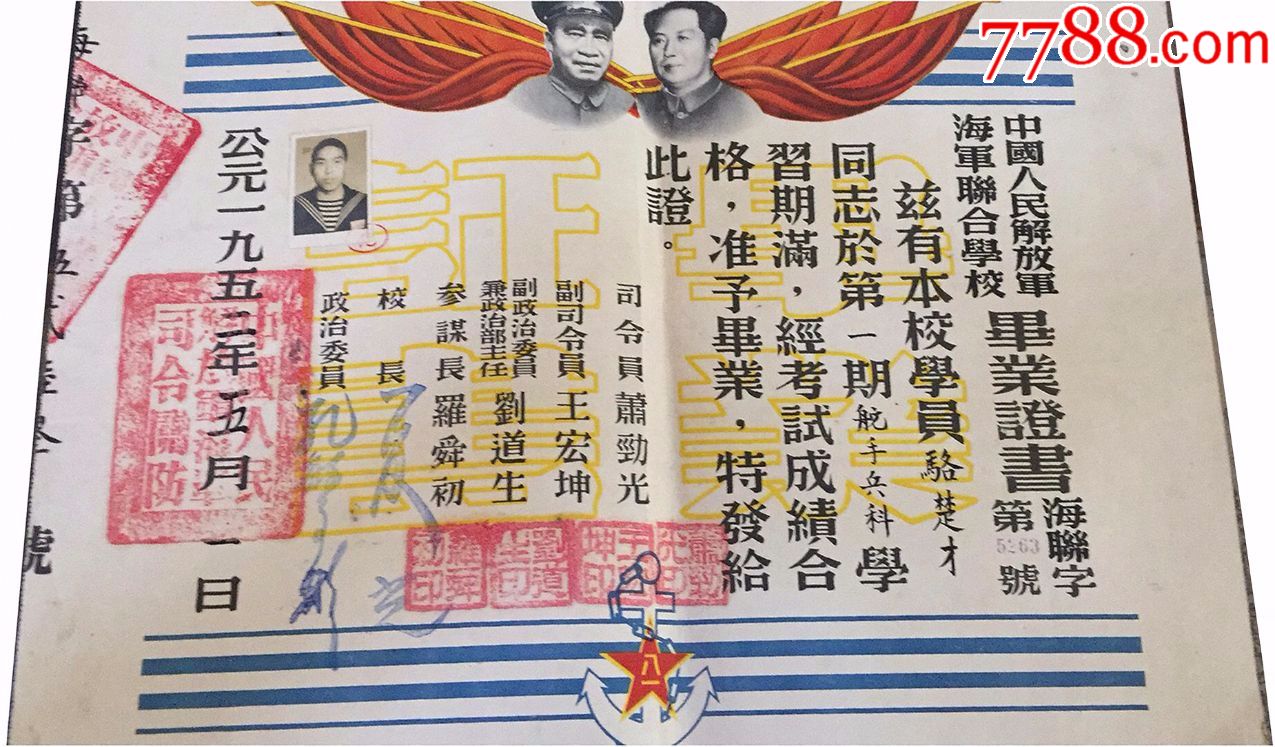 7788.com
中國人民解放軍
海軍聯合學校
畢業證書
海聯字
第5263號
茲有本校學員駱楚才
同志於第一期舵手兵科學
習期滿，經考試成績合
格，准予畢業，特發給
此證。
司令員 蕭勁光
副司令員 王宏坤
副政治委員
兼政治部主任
劉道生
參謀長 羅舜初
校長
政治委員
公元一九五二年五月一日
畢業
証書
蕭勁光印
王宏坤印
劉道生印
羅舜初印
司令關防
海聯字第伍
號
八一